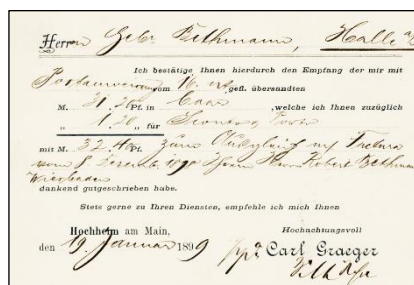 Herrn Gebr. Bethmann, Halle a/S
Ich bestätige Ihnen hierdurch den Empfang der mir mit
Postanweisung vom 16. crt gefl. übersandten
M. 31.20 Pf. in Baar, welche ich Ihnen zuzüglich
„ 1.20 „ für
mit M. 32.40 Pf. zum Ausgleich
vom 8 Dezemb. 1898 Herrn Robert Bethmann
Wiesbaden
dankend gutgeschrieben habe.
Stets gerne zu Ihren Diensten, empfehle ich mich Ihnen
Hochachtungsvoll
Hochheim am Main,
den 19. Januar 1899 ppa Carl Graeger